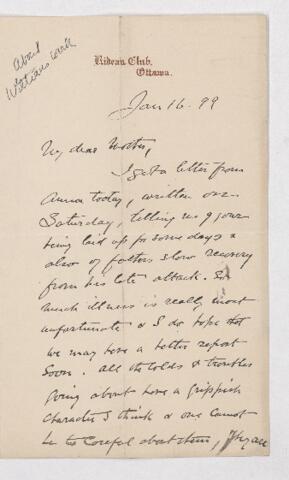 About
William's work
Rideau Club,
Ottawa.
Jan 16. 99
My dear Mother,
I got a letter from
Anna today, written on
Saturday, telling me of your
being laid up for some days &
also of father's slow recovery
from his late attack. So
much illness is really most
unfortunate & I do hope that
we may have a better report
soon. All the colds & troubles
going about have a grippish
character I think & one cannot
be too careful about them,